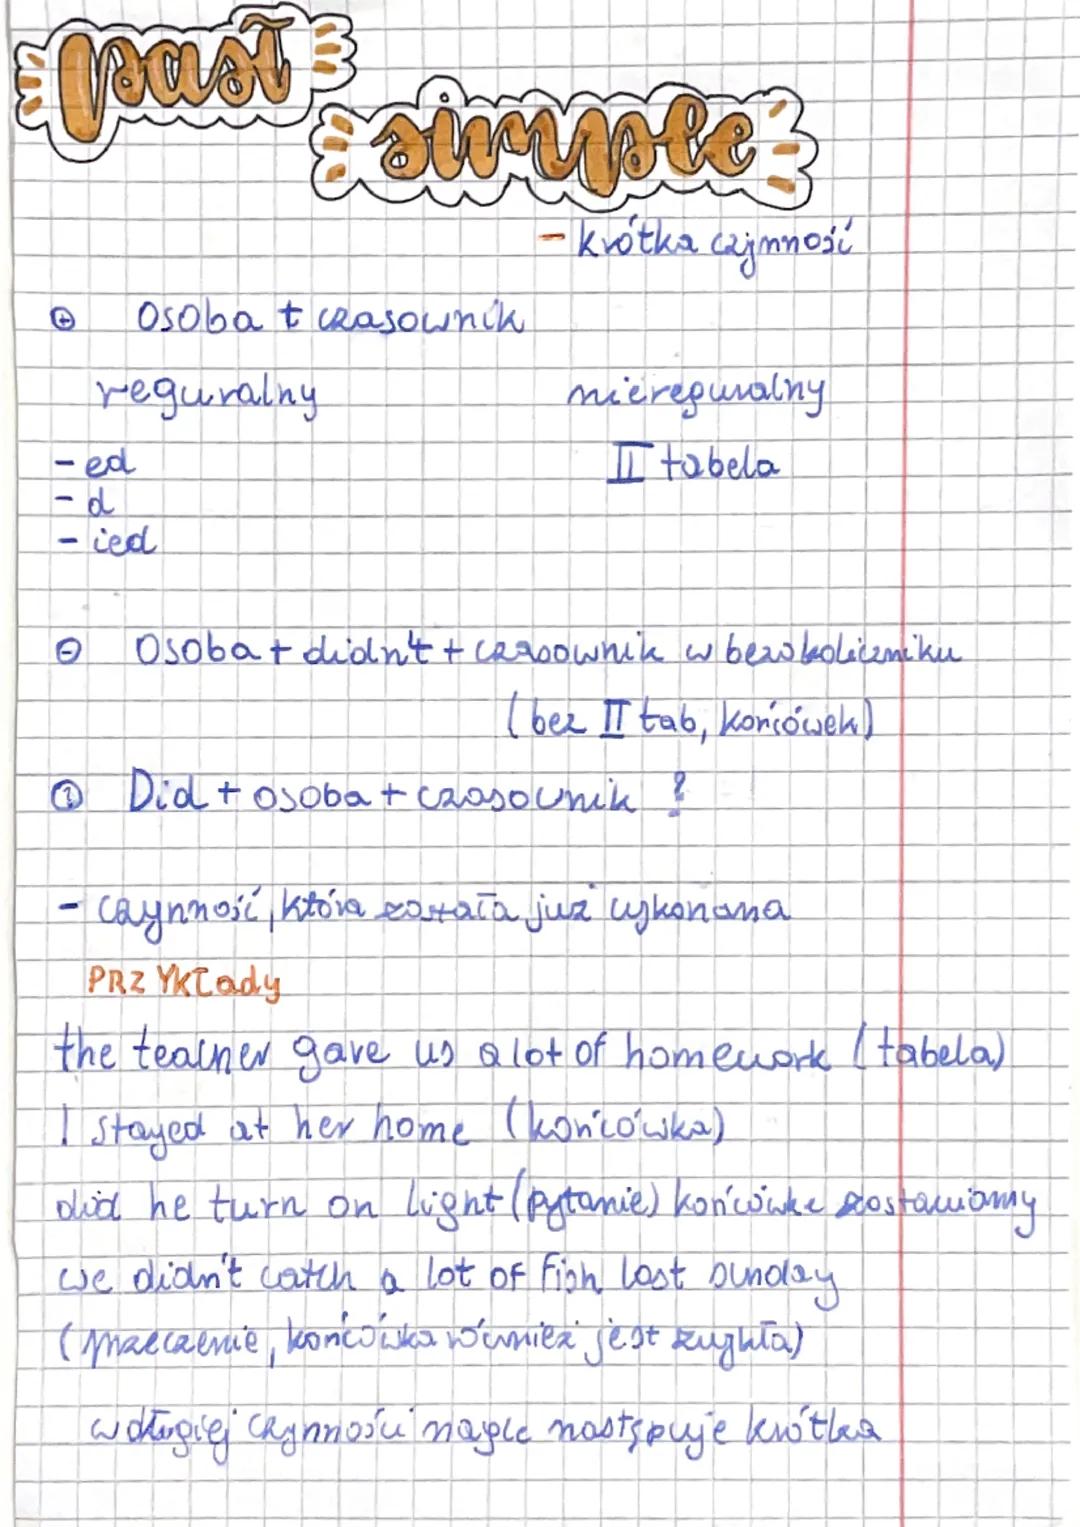 past
simple
- krótka czynność
⊕ Osoba + czasownik
reguralny nieregularny
- ed II tabela
- d
- ied
⊖ Osoba + didn't + czasownik w bezokoliczniku
(bez II tab, końcówek)
? Did + osoba + czasownik ?
- czynność, która została już wykonana
PRZYKŁady
the teacher gave us a lot of homework (tabela)
I stayed at her home (końcówka)
did he turn on light (pytanie) końcówkę zostawiamy
we didn't catch a lot of fish last sunday
(przeczenie, końcówka również jest zwykła)
w długiej czynności nagle następuje krótka